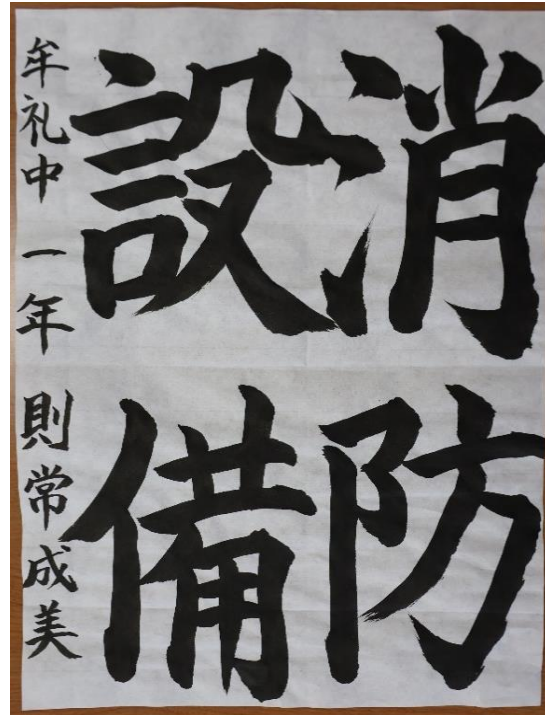 消防
設備
牟礼中 一年 則常成美